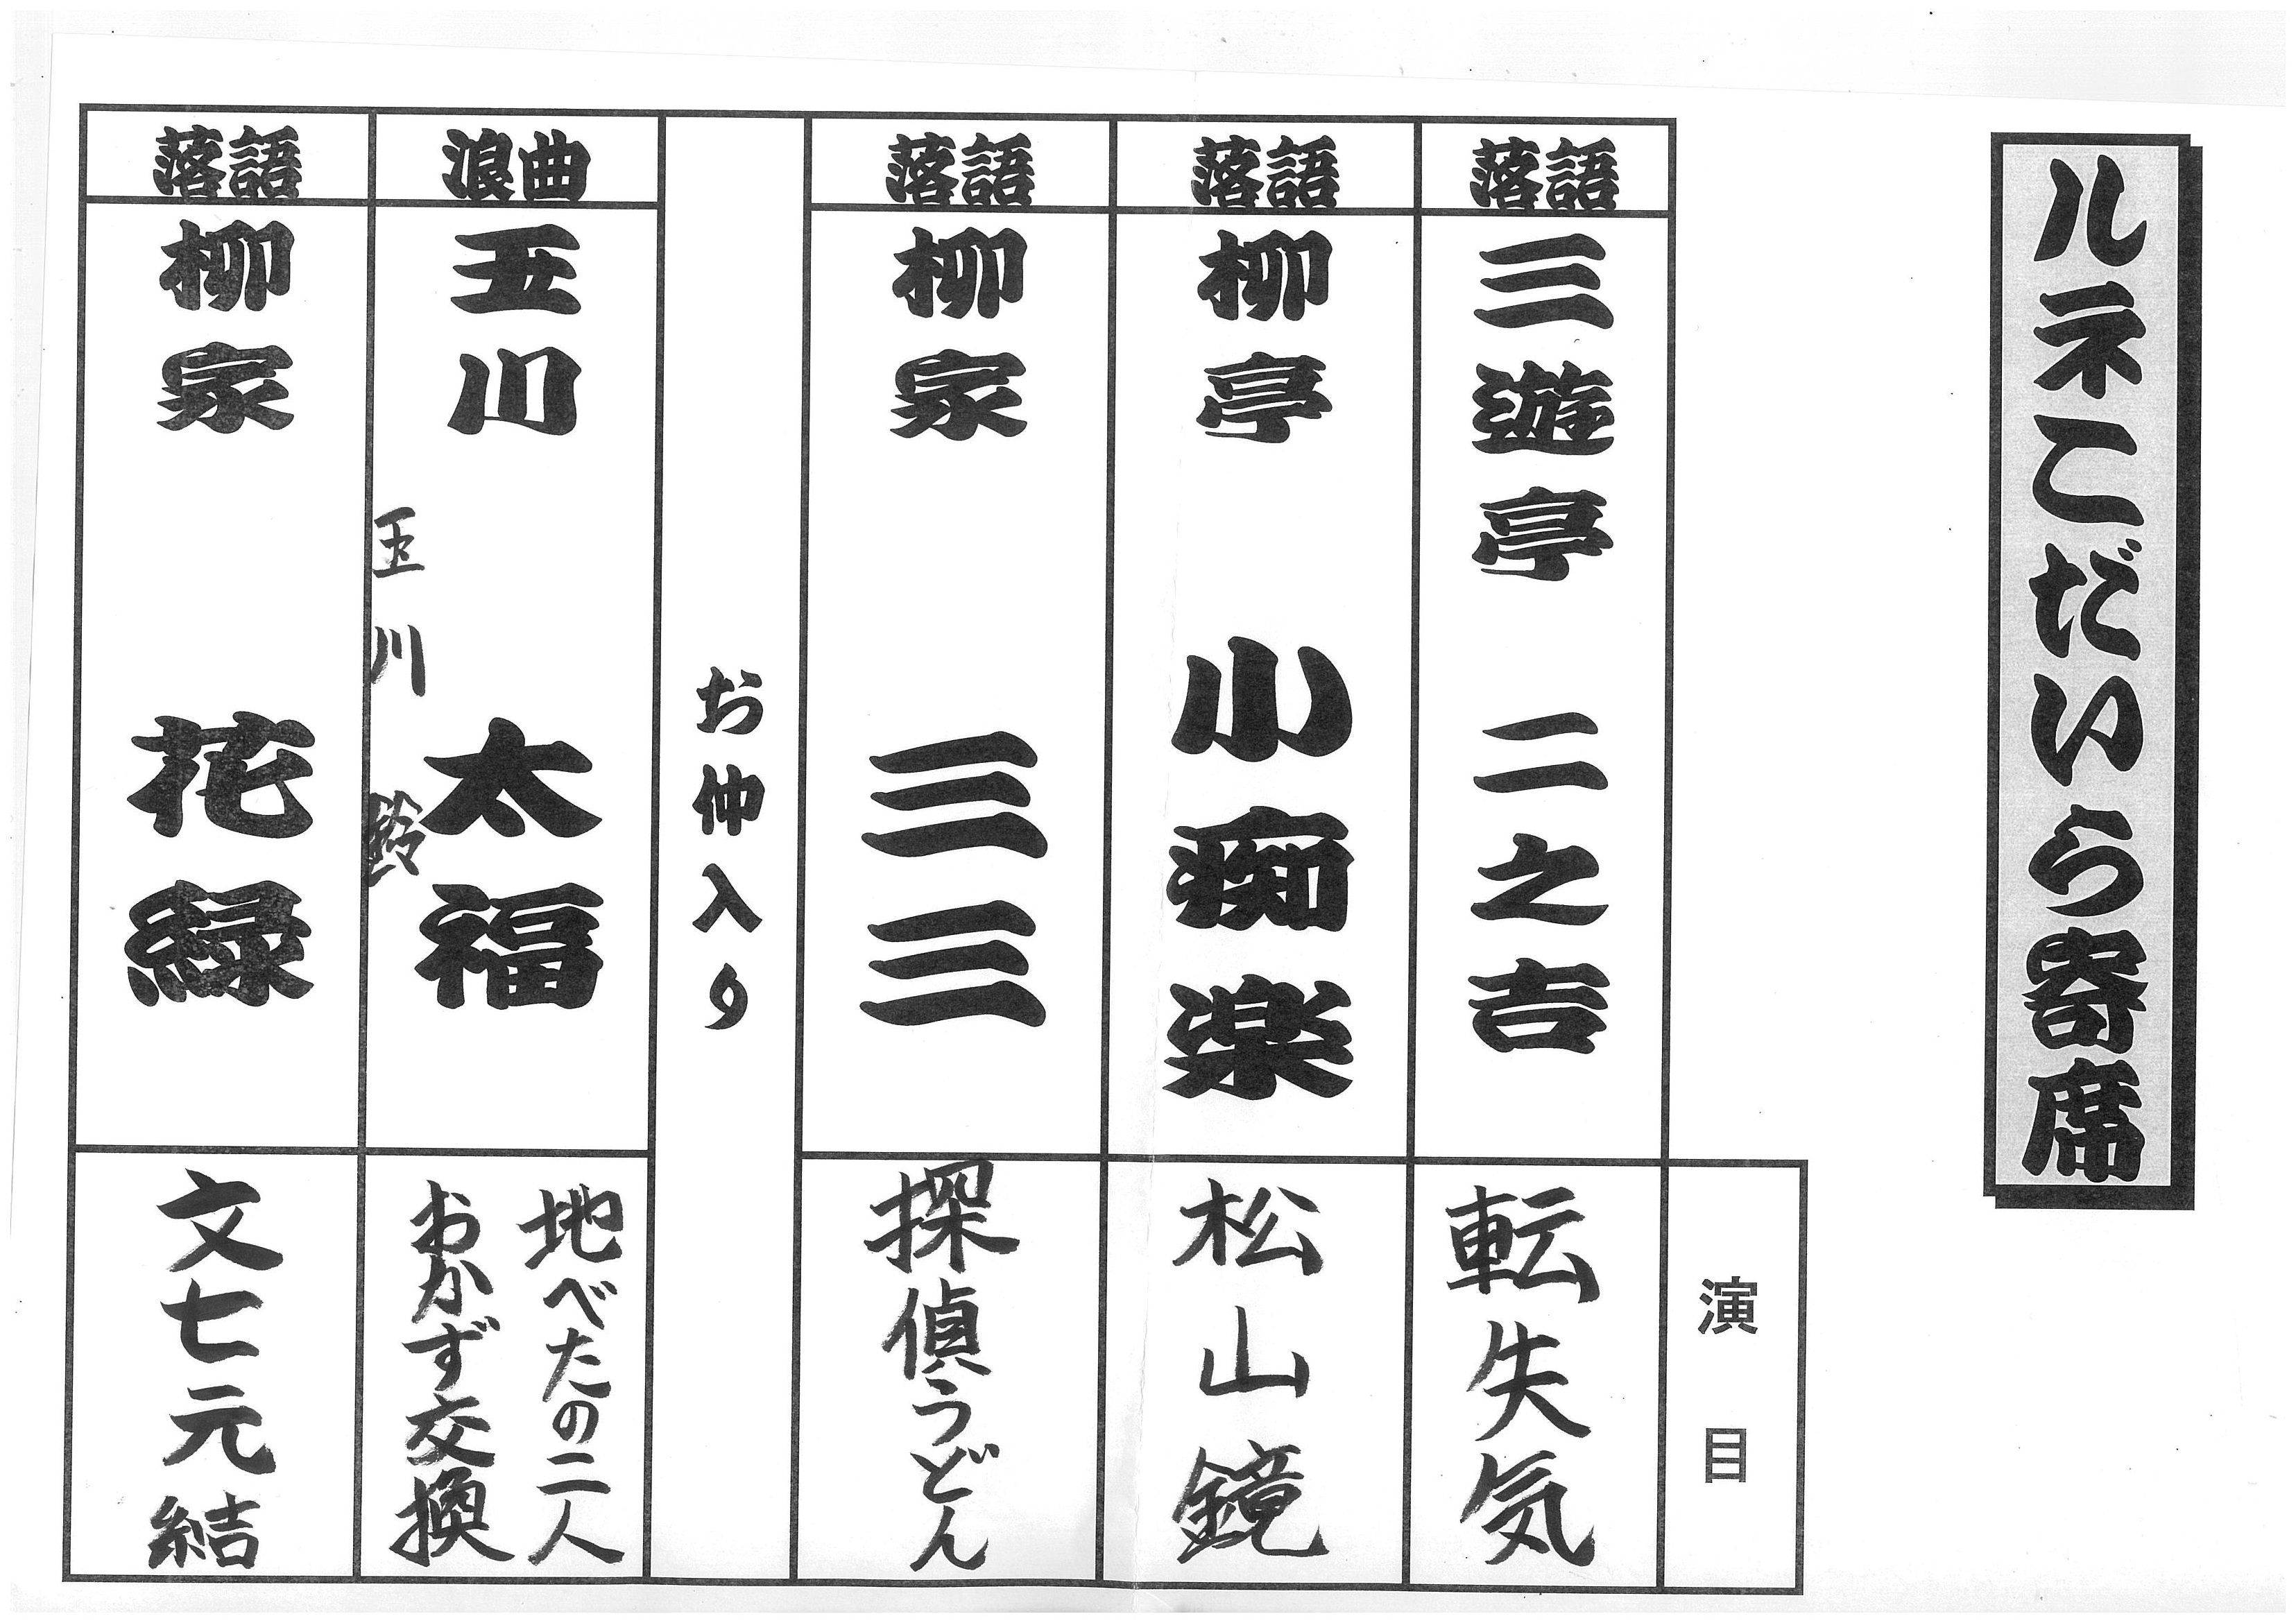 ルネこだいら寄席
演目
落語
三遊亭 二之吉
転失気
落語
柳亭 小痴楽
松山鏡
落語
柳家 三三
探偵うどん
お仲入り
浪曲
玉川 太福
玉川 鈴
地べたの二人
おかず交換
落語
柳家 花緑
文七元結